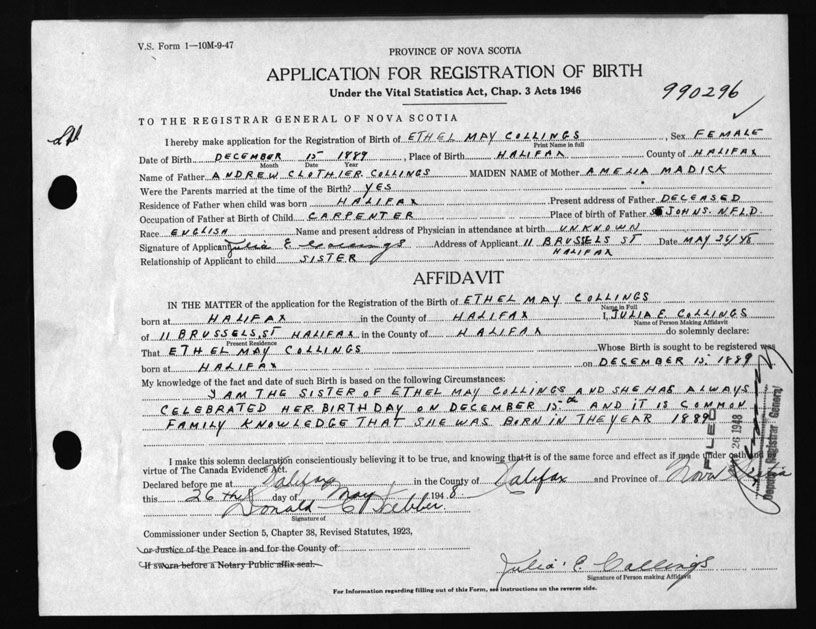 V.S. Form 1—10M-9-47
PROVINCE OF NOVA SCOTIA
APPLICATION FOR REGISTRATION OF BIRTH
Under the Vital Statistics Act, Chap. 3 Acts 1946
990296
TO THE REGISTRAR GENERAL OF NOVA SCOTIA
I hereby make application for the Registration of Birth of ETHEL MAY COLLINGS, Sex FEMALE
Print Name in full
Date of Birth DECEMBER 15 1889, Place of Birth HALIFAX County of HALIFAX
Month Date Year
Name of Father ANDREW CLOTHIER COLLINGS MAIDEN NAME of Mother AMELIA MADICK
Were the Parents married at the time of the Birth? YES
Residence of Father when child was born HALIFAX Present address of Father DECEASED
Occupation of Father at Birth of Child CARPENTER Place of birth of Father ST JOHNS. NFLD.
Race ENGLISH Name and present address of Physician in attendance at birth UNKNOWN
Signature of Applicant Julia E Collings Address of Applicant 11 BRUSSELS ST Date MAY 26/48
HALIFAX
Relationship of Applicant to child SISTER
AFFIDAVIT
IN THE MATTER of the application for the Registration of the Birth of ETHEL MAY COLLINGS
Name in Full
born at HALIFAX in the County of HALIFAX I, JULIA E. COLLINGS
Name of Person Making Affidavit
of 11 BRUSSELS ST HALIFAX in the County of HALIFAX do solemnly declare:
Present Residence
That ETHEL MAY COLLINGS Whose Birth is sought to be registered was
born at HALIFAX on DECEMBER 15, 1889
My knowledge of the fact and date of such Birth is based on the following Circumstances:
I AM THE SISTER OF ETHEL MAY COLLINGS AND SHE HAS ALWAYS
CELEBRATED HER BIRTHDAY ON DECEMBER 15th AND IT IS COMMON
FAMILY KNOWLEDGE THAT SHE WAS BORN IN THE YEAR 1889
FILED
26 1948
Deputy Registrar General
I make this solemn declaration conscientiously believing it to be true, and knowing that it is of the same force and effect as if made under oath and by
virtue of The Canada Evidence Act.
Declared before me at Halifax in the County of Halifax and Province of Nova Scotia
this 26th day of May 1948
Donald C Webber
Signature of
Commissioner under Section 5, Chapter 38, Revised Statutes, 1923,
or Justice of the Peace in and for the County of
If sworn before a Notary Public affix seal.
Julia E. Collings
Signature of Person making Affidavit
For Information regarding filling out of this Form, see instructions on the reverse side.